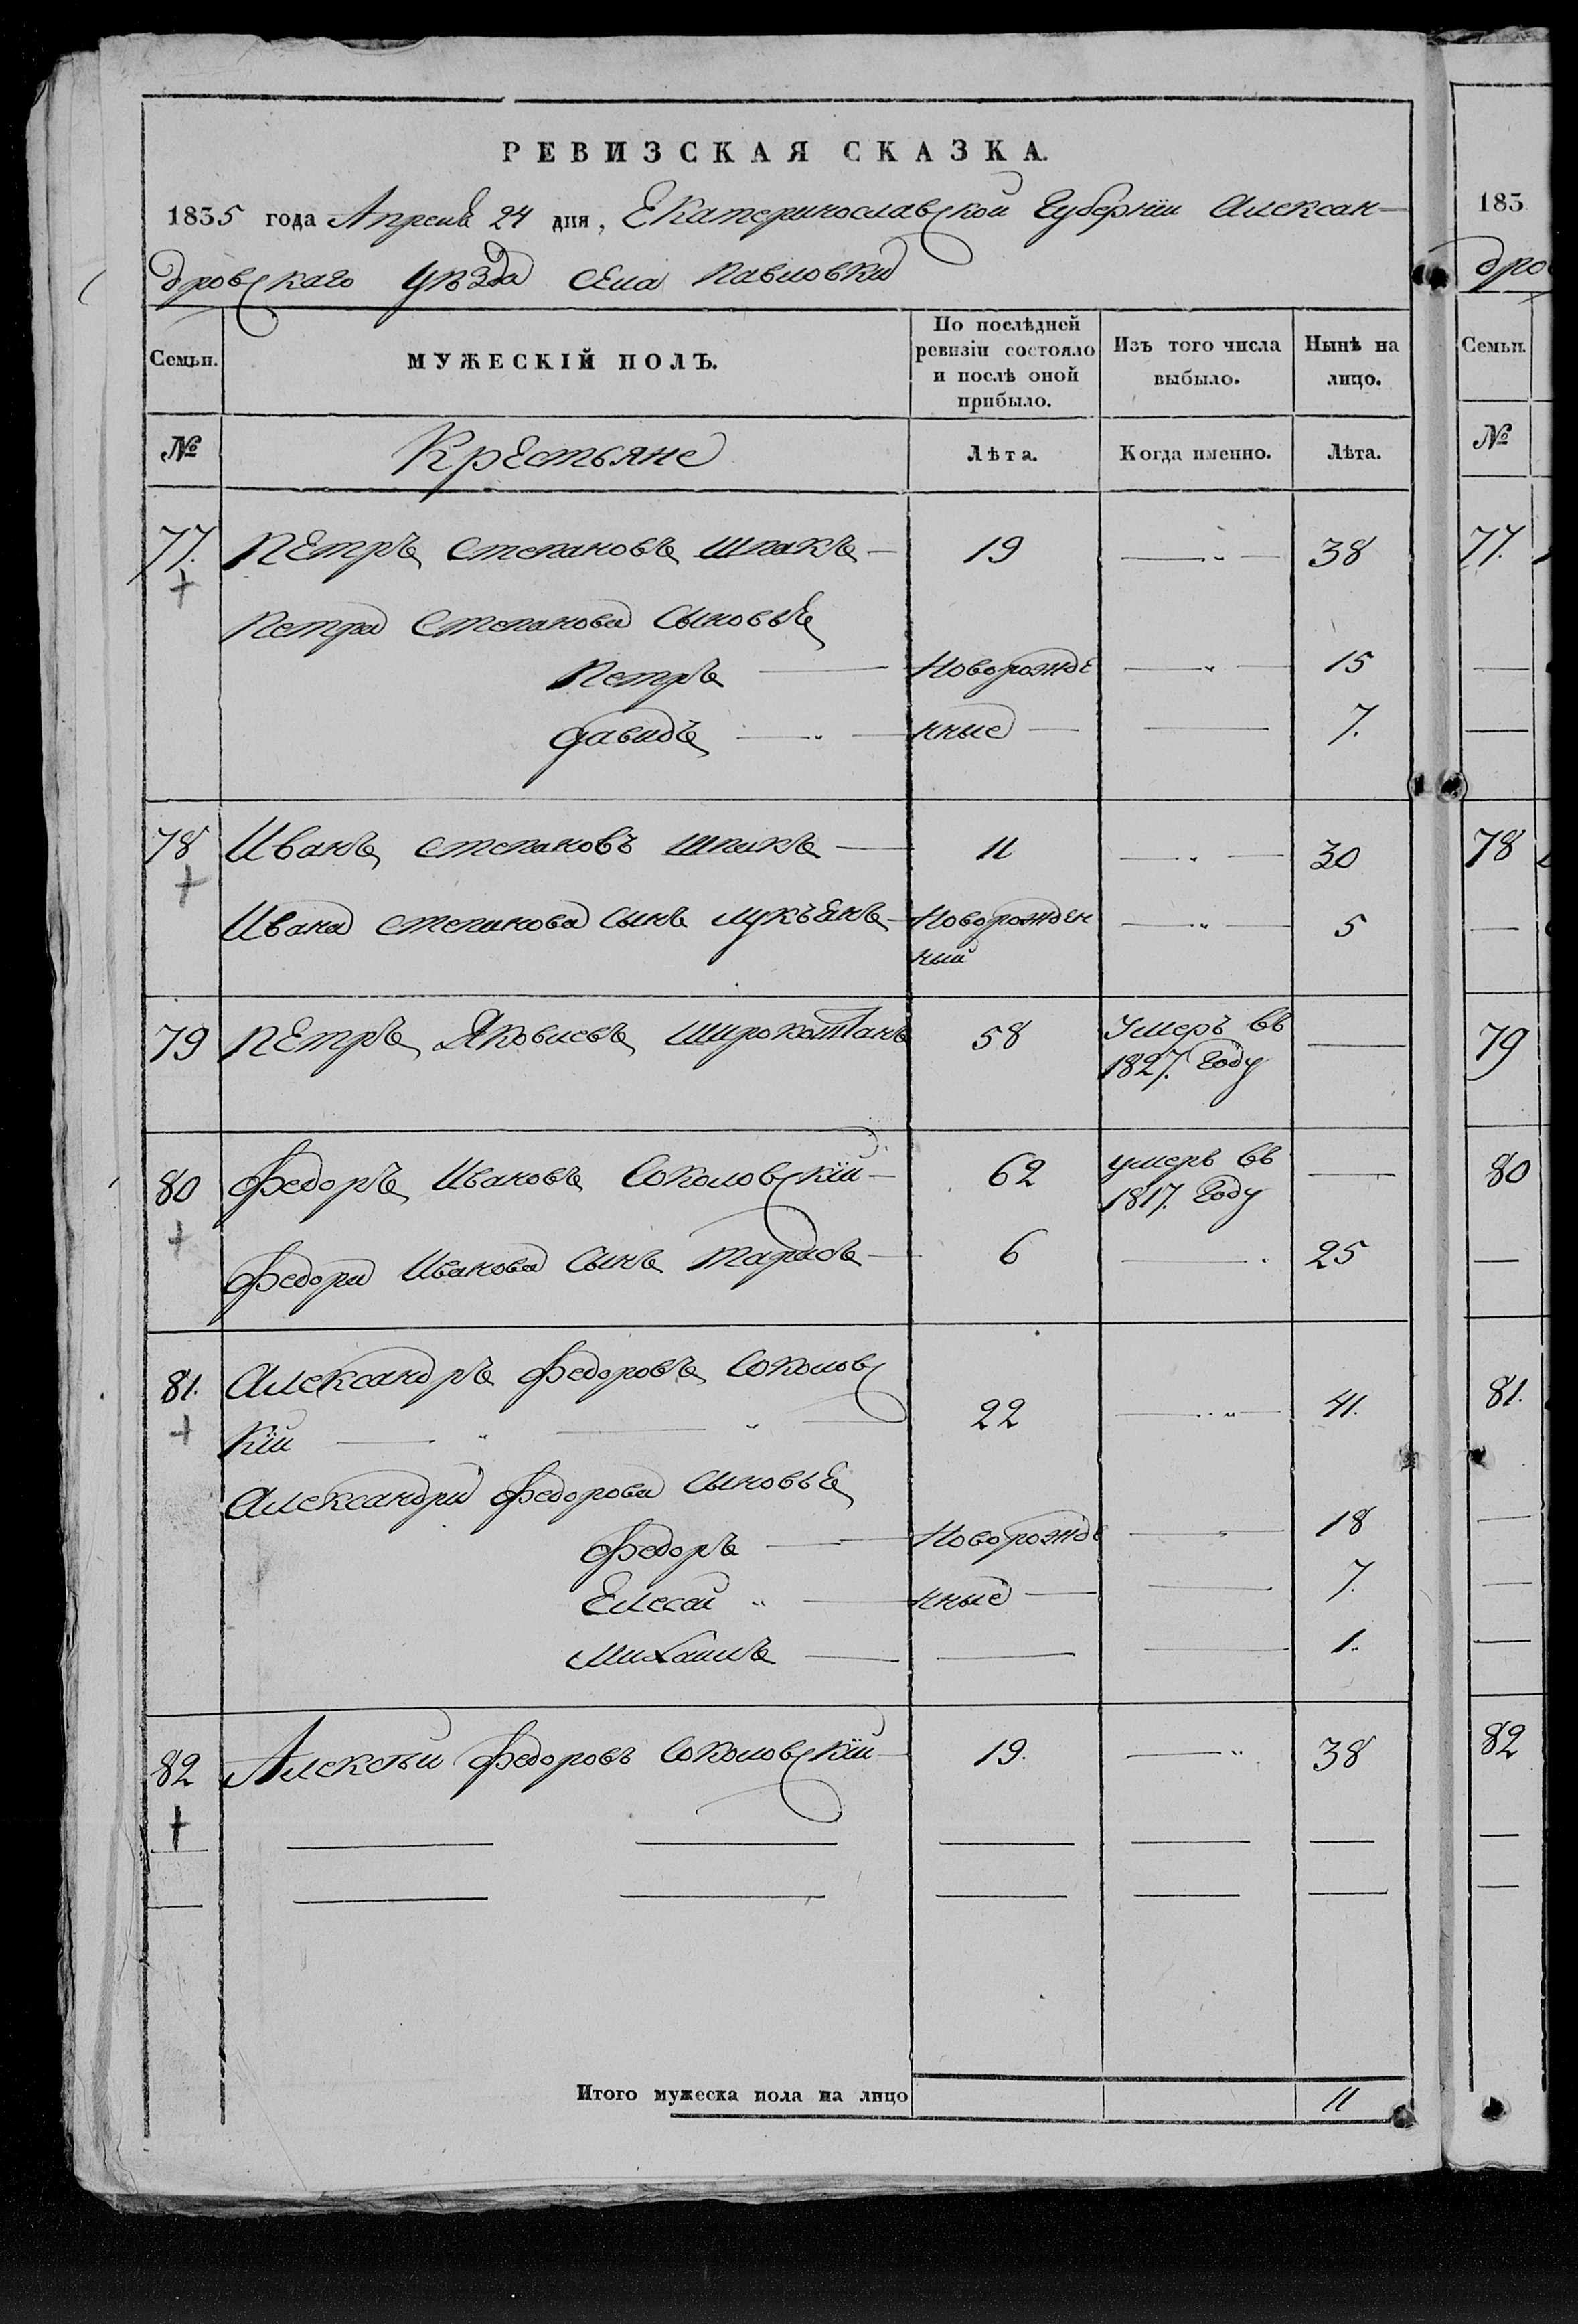 РЕВИЗСКАЯ СКАЗКА.
1835 года Апреля 24 дня, Екатеринославской Губернїи Алексан-
дровскаго уѣзда села Павловки
Семьи.
МУЖЕСКІЙ ПОЛЪ.
По послѣдней
ревизіи состояло
и послѣ оной
прибыло.
Изъ того числа
выбыло.
Нынѣ на
лицо.
№ Крестьяне Лѣта. Когда именно. Лѣта.
77. Петръ Степановъ Шпакъ — 19 — „ — 38
Петра Степанова сыновье
Петръ — Новорожде — „ — 15
Давидъ — „ — нные — — 7.
78 Иванъ Степановъ Шпакъ — 11 — „ — 30
Ивана Степанова сынъ Лукьянъ — Новорожден — „ — 5
ный
79 Петръ Яковлевъ Широкоштанъ 58 Умеръ въ —
1827. Году
80 Федоръ Ивановъ Соколовскїй — 62 умеръ въ —
1817. Году
Федора Иванова сынъ Тарасъ — 6 — 25
81. Александръ Федоровъ Соколовс
кїй — „ — „ — 22 — „ — 41.
Александра Федорова сыновье
Федоръ — Новорожде — „ — 18
Елесей „ — нные — — 7.
Михаилъ — — — 1.
82 Алексѣй Федоровъ Соколовскїй — 19. — „ 38
Итого мужеска пола на лицо 11
183
дро
Семьи.
№
77.
78
79
80
81.
82